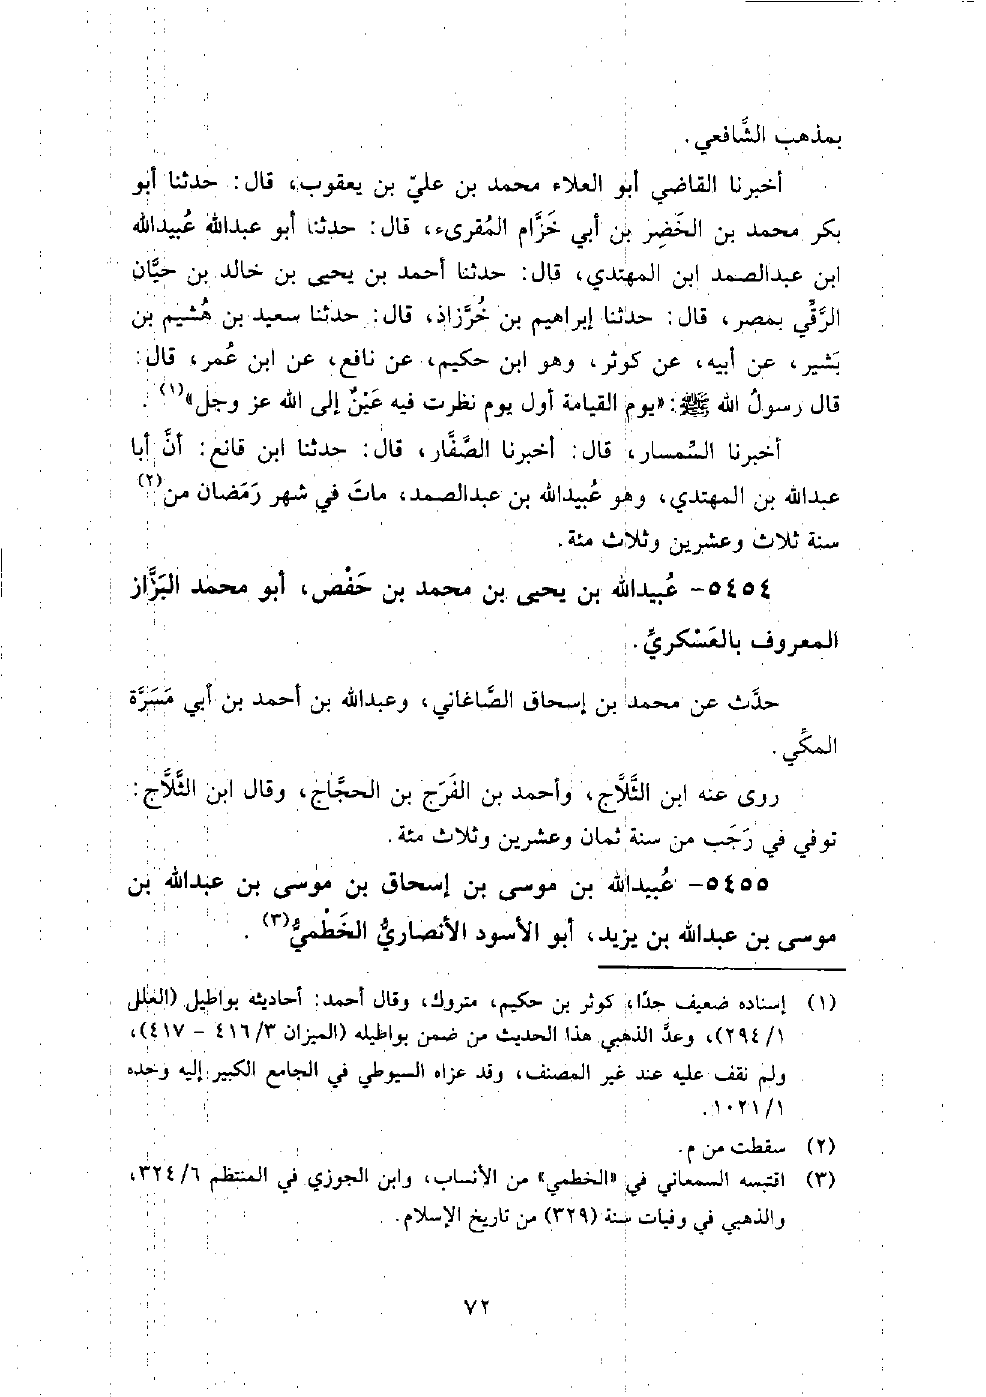 بمذهب الشَّافعي.
أخبرنا القاضي أبو العلاء محمد بن عليّ بن يعقوب، قال: حدثنا أبو
بكر محمد بن الخَضِر بن أبي خَزَّام المُقرىء، قال: حدثنا أبو عبدالله عُبيدالله
ابن عبدالصمد ابن المهتدي، قال: حدثنا أحمد بن يحيى بن خالد بن حيَّان
الرَّقِّي بمصر، قال: حدثنا إبراهيم بن خُرَّزاذ، قال: حدثنا سعيد بن هُشيم بن
بَشير، عن أبيه، عن كوثر، وهو ابن حكيم، عن نافع، عن ابن عُمر، قال:
قال رسولُ الله ﷺ: «يوم القيامة أول يوم نظرت فيه عَيْنٌ إلى الله عز وجل»(١).
أخبرنا السِّمسار، قال: أخبرنا الصَّفَّار، قال: حدثنا ابن قانع: أنَّ أبا
عبدالله بن المهتدي، وهو عُبيدالله بن عبدالصمد، ماتَ في شهر رَمَضان من(٢)
سنة ثلاث وعشرين وثلاث مئة.
٥٤٥٤- عُبيدالله بن يحيى بن محمد بن حَفْص، أبو محمد البَزَّاز
المعروف بالعَسْكريِّ.
حدَّث عن محمد بن إسحاق الصَّاغاني، وعبدالله بن أحمد بن أبي مَسَرَّة
المكِّي.
روى عنه ابن الثَّلَّاج، وأحمد بن الفَرَج بن الحجَّاج، وقال ابن الثَّلَّاج:
توفي في رَجَب من سنة ثمان وعشرين وثلاث مئة.
٥٤٥٥- عُبيدالله بن موسى بن إسحاق بن موسى بن عبدالله بن
موسى بن عبدالله بن يزيد، أبو الأسود الأنصاريُّ الخَطْميُّ(٣).
(١) إسناده ضعيف جدًا، كوثر بن حكيم، متروك، وقال أحمد: أحاديثه بواطيل (العلل
١/ ٢٩٤)، وعدَّ الذهبي هذا الحديث من ضمن بواطيله (الميزان ٣/ ٤١٦ - ٤١٧)،
ولم نقف عليه عند غير المصنف، وقد عزاه السيوطي في الجامع الكبير إليه وحده
١/ ١٠٢١.
(٢) سقطت من م.
(٣) اقتبسه السمعاني في «الخطمي» من الأنساب، وابن الجوزي في المنتظم ٦/ ٣٢٤،
والذهبي في وفيات سنة (٣٢٩) من تاريخ الإسلام.
٧٢